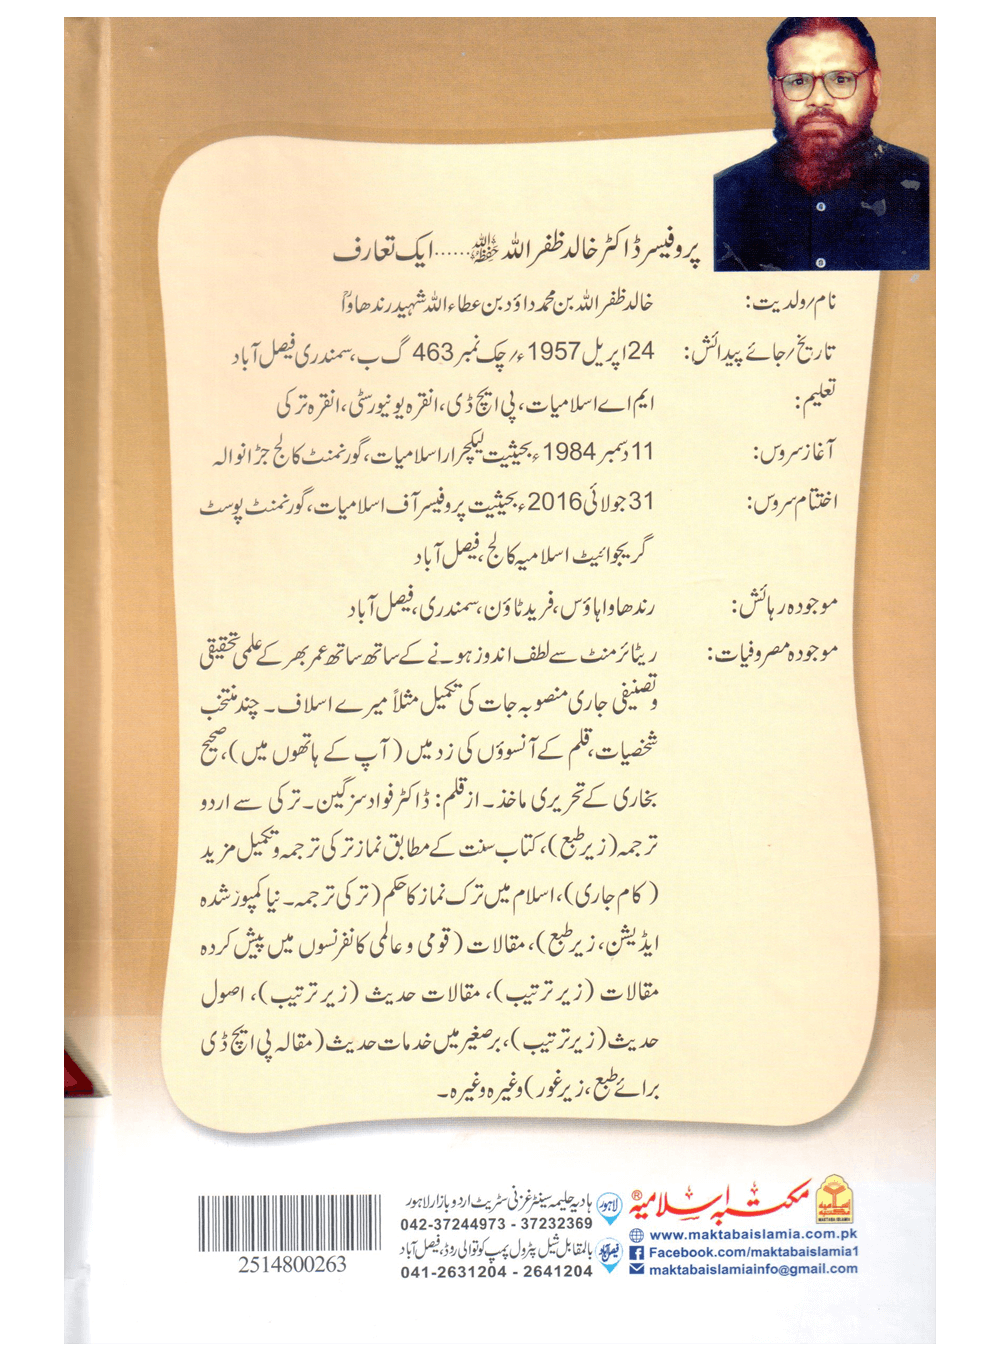 پروفیسر ڈاکٹر خالد ظفر اللہ حفظہ اللہ ...... ایک تعارف
نام/ولدیت: خالد ظفر اللہ بن محمد داؤد بن عطاء اللہ شہید رندھاوا
تاریخ/جائے پیدائش: 24 اپریل 1957ء/چک نمبر 463 گ ب، سمندری فیصل آباد
تعلیم: ایم اے اسلامیات، پی ایچ ڈی، انقرہ یونیورسٹی، انقرہ ترکی
آغاز سروس: 11 دسمبر 1984ء بحیثیت لیکچرار اسلامیات، گورنمنٹ کالج جڑانوالہ
اختتام سروس: 31 جولائی 2016ء بحیثیت پروفیسر آف اسلامیات، گورنمنٹ پوسٹ
گریجوائیٹ اسلامیہ کالج، فیصل آباد
موجودہ رہائش: رندھاوا ہاؤس، فرید ٹاؤن، سمندری، فیصل آباد
موجودہ مصروفیات: ریٹائرمنٹ سے لطف اندوز ہونے کے ساتھ ساتھ عمر بھر کے علمی تحقیقی
و تصنیفی جاری منصوبہ جات کی تکمیل مثلاً میرے اسلاف۔ چند منتخب
شخصیات، قلم کے آنسوؤں کی زد میں (آپ کے ہاتھوں میں)، صحیح
بخاری کے تحریری ماخذ۔ از قلم: ڈاکٹر فواد سزگین۔ ترکی سے اردو
ترجمہ (زیر طبع)، کتاب سنت کے مطابق نماز ترکی ترجمہ و تکمیل مزید
(کام جاری)، اسلام میں ترک نماز کا حکم (ترکی ترجمہ۔ نیا کمپوز شدہ
ایڈیشن، زیر طبع)، مقالات (قومی و عالمی کانفرنسوں میں پیش کردہ
مقالات (زیر ترتیب)، مقالات حدیث (زیر ترتیب)، اصول
حدیث (زیر ترتیب)، برصغیر میں خدمات حدیث (مقالہ پی ایچ ڈی
برائے طبع، زیر غور) وغیرہ وغیرہ۔
مکتبہ اسلامیہ ®
MAKTABA ISLAMIA
www.maktabaislamia.com.pk
Facebook.com/maktabaislamia1
maktabaislamiainfo@gmail.com
لاہور ہادیہ حلیمہ سینٹر غزنی سٹریٹ اردو بازار لاہور
042-37244973 - 37232369
فیصل آباد بالمقابل شیل پٹرول پمپ کوتوالی روڈ، فیصل آباد
041-2631204 - 2641204
2514800263